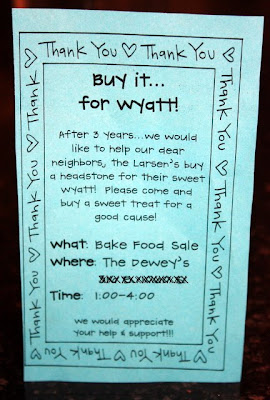 Thank You ♡ Thank You ♡
Buy it...
for Wyatt!
After 3 years...we would
like to help our dear
neighbors, the Larsen's buy
a headstone for their sweet
Wyatt! Please come and
buy a sweet treat for a
good cause!
What: Bake Food Sale
Where: The Dewey's
Time: 1:00-4:00
we would appreciate
your help & support!!!
Thank You ♡ Thank You ♡
Thank You ♡ Thank You ♡ Thank
Thank ♡ Thank You ♡ Thank You